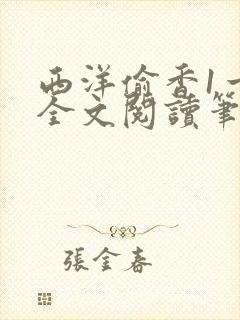 西洋偷香1一
全文閱讀筆
張金春